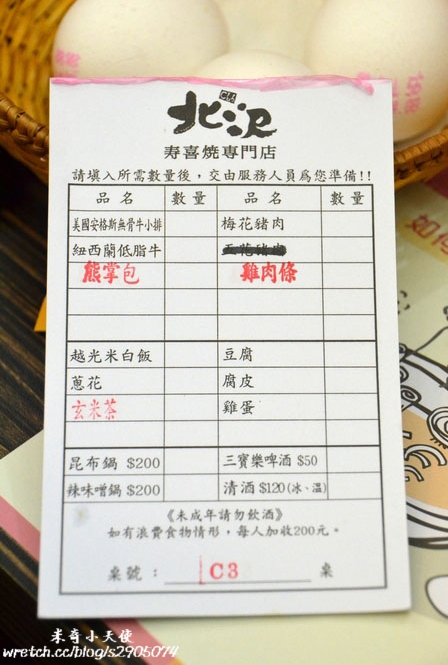 北澤
寿喜燒專門店
請填入所需數量後，交由服務人員為您準備!!
品名 數量 品名 數量
美國安格斯無骨牛小排 梅花豬肉
紐西蘭低脂牛 五花豬肉
熊掌包 雞肉條
越光米白飯 豆腐
蔥花 腐皮
玄米茶 雞蛋
昆布鍋 $200 三寶樂啤酒 $50
辣味噌鍋 $200 清酒 $120 (冰、溫)
《未成年請勿飲酒》
如有浪費食物情形，每人加收200元。
桌號： C3 桌
米奇小天使
wretch.cc/blog/s2905074